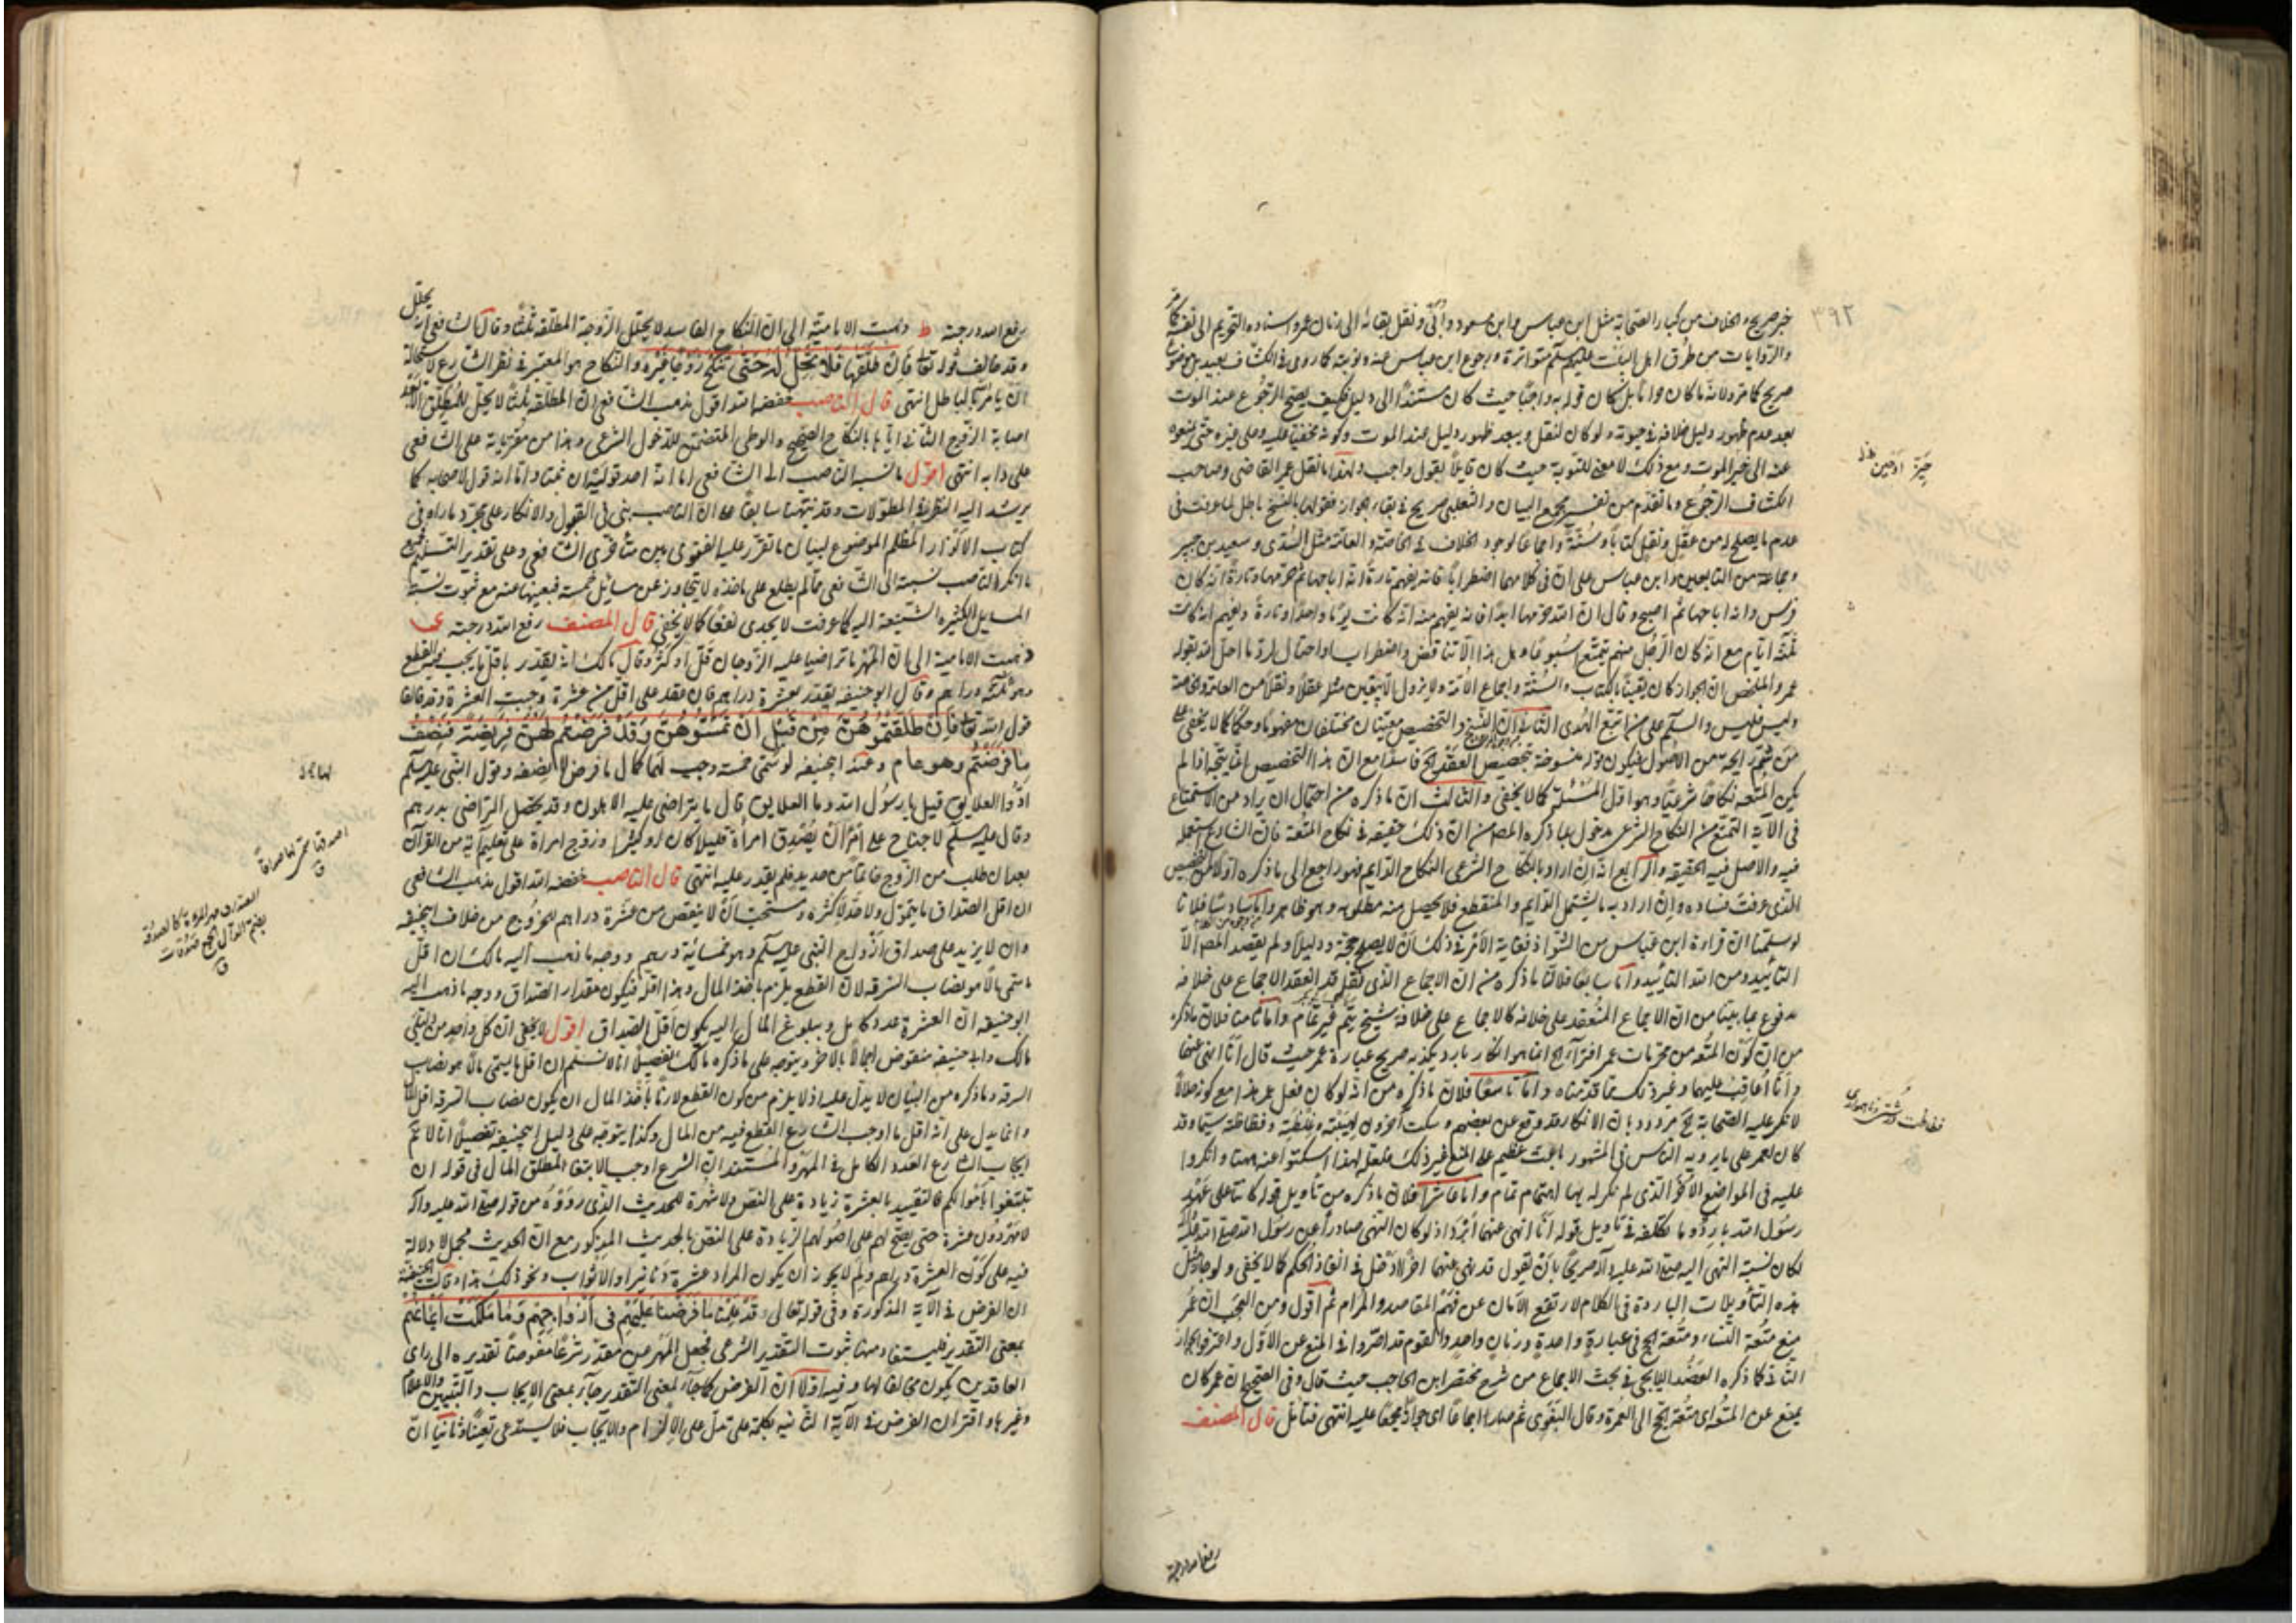 ٣٩٢
خبر صريح والخلاف من كبار الصحابة مثل ابن عباس وابن مسعود وأبي ونقل بقائه الى زمان عمر واسناده التحريم الى نفسه كما مر
والروايات من طرق اهل البيت عليهم السلم متواترة ورجوع ابن عباس عنه وتوبته كما روى في الكشاف بعيد
صريح كما مر ولانه ما كان حراما بل كان قوله به واجبا حيث كان مستندا الى دليل فكيف يصح الرجوع عند الموت
بعد عدم ظهور دليل خلافه في حيوته ولو كان لنقل ويبعد ظهور دليل عند الموت وكونه مخفيا عليه وعلى غيره حتى
عنه الى حين الموت ومع ذلك لا معنى للتوبة حيث كان قايلا بقول واجب ولهذا ما نقل عمر القاضي وصاحب
الكشاف الرجوع وما تقدم من تفسير مجمع البيان والثعلبي صريح في بقاء الجواز فقولها بالنسخ باطل لما عرفت في
عدم ما يصلح له من عقل ونقل كتابا وسنة واجماعا لوجود الخلاف في الخاصة والعامة مثل السدى وسعيد بن جبير
وجماعة من التابعين وابن عباس على ان في كلامهما اضطرابا فانه يفهم تارة انه اباحها ثم حرمها وتارة انه كان
وانه اباحها ثم اصبح وقال ان الله حرمها ابدا فانه يفهم منه انه كانت يوما واحدا وتارة ويفهم انه كانت
ثلثة ايام مع انه كان الرجل منهم يتمتع اسبوعا وهل هذا الا تناقض واضطراب واحتمال لرد ما احل الله بقول
عمر والملخص ان الجواز كان يقينا بالكتاب والسنة واجماع الامة ولا يزول الا بيقين مثله عقلا ونقلا من العامة والخاصة
وليس فليس والسلم على من اتبع الهدى الثاني ان النسخ والتخصيص معنيان مختلفان مفهوما وحكما كما لا يخفى على
من شم رايحة من الاصول فيكون قوله منسوخة بتخصيص العقد الخ فاسدا مع ان هذا التخصيص انما يتجه اذا لم
يكن المتعة نكاحا شرعيا وهو اول المسئلة كما لا يخفى والثالث ان ما ذكره من احتمال ان يراد من الاستمتاع
في الآية التمتع من النكاح الشرعى مدخول بما ذكره المص من ان ذلك حقيقة في نكاح المتعة فان الشارع استعمله
فيه والاصل فيه الحقيقة والرابع انه ان اراد بالنكاح الشرعى النكاح الدايم فهو راجع الى ما ذكره اولا من التخصيص
الذى عرفت فساده وان اراد به ما يشمل الدايم والمنقطع فلا يحصل منه مطلوبه وهو ظاهر واما سادسا فلانا
لو سلمنا ان قراءة ابن عباس من الشواذ فغاية الامر في ذلك ان لا يصلح حجة ودليلا ولم يقصد المص الا
التأييد ومن الله التأييد واما سابعا فلان ما ذكره من ان الاجماع الذى نقل قد انعقد الاجماع على خلافه
مدفوع بما بينا من ان الاجماع المنعقد على خلافه كالاجماع على خلافة شيخ تيم غير تام واما ثامنا فلان ما ذكره
من ان كون المتعة من محرمات عمر افتراء الخ انما هو انكار بارد يكذبه صريح عبارة عمر حيث قال انا انهى عنهما
وانا اعاقب عليهما وغير ذلك مما قدمناه واما تاسعا فلان ما ذكره من انه لو كان فعل عمر هذا مع كونه حلالا
لانكر عليه الصحابة الخ مردود بان الانكار قد وقع عن بعضهم وسكت آخرون لهيبته وغلظته وفظاظته سيما وقد
كان لعمر على ما يرويه الناس في المشهور باعث عظيم على المنع غير ذلك فلعله لهذا اسكتوا عنه ههنا وانكروا
عليه في المواضع الاخر الذى لم يكن له بها اهتمام تمام واما عاشرا فلان ما ذكره من تأويل قوله كانتا على عهد
رسول الله بارد وما تكلفه في تأويل قوله انا انهى عنهما ابرد اذ لو كان النهى صادرا عن رسول الله صلى الله عليه وآله
لكان نسبة النهى اليه صلى الله عليه وآله صريحا بان يقول قد نهى عنهما احرى وادخل في انفاذ الحكم كما لا يخفى ولو جاز مثل
هذه التأويلات الباردة في الكلام لارتفع الامان عن فهم المقاصد والمرام ثم اقول ومن العجب ان عمر
منع متعة النساء ومتعة الحج في عبارة واحدة وزمان واحد والقوم قد اصروا في المنع عن الاول واعترفوا بجواز
الثاني كما ذكره العضد الايجي في بحث الاجماع من شرح مختصر ابن الحاجب حيث قال وفى الصحيح ان عمر كان
يمنع عن المتعة اى متعة الحج الى العمرة وقال البغوى ثم صار اجماعا اى جوازه مجمعا عليه انتهى فتأمل قال المصنف
رفع الله درجته
رفع الله درجته ط ذهبت الامامية الى ان النكاح الفاسد لا يحلل الزوجة المطلقة ثلثا وقال الشافعي انه يحلل
وقد خالف قوله تعا فان طلقها فلا تحل له حتى تنكح زوجا غيره والنكاح هو المعتبر في نظر الشارع لاستحالة
ان يأمر بالباطل انتهى قال الناصب خفضه الله اقول مذهب الشافعي ان المطلقة ثلثا لا يحل للمطلق الا بعد
اصابة الزوج الثاني اياها بالنكاح الصحيح والوطى المتضمن للدخول الشرعى وهذا من مفترياته على الشافعي
على دأبه انتهى اقول ما نسبه الناصب الى الشافعي اما انه احد قوليه ان ثبتا واما انه قول لاصحابه كما
يرشد اليه النظر في المطولات وقد نبهنا سابقا على ان الناصب يبنى في القبول والانكار على مجرد ما رآه في
كتاب الانوار المظلم الموضوع لبيان ما تقرر عليه الفتوى من بين متأخرى الشافعي وعلى تقدير التسليم فجميع
ما انكر الناصب نسبته الى الشافعي مما لم يطلع على مأخذه لا يتجاوز عن مسايل خمسة فبعينها عنه مع ثبوت نسبة
المسايل الكثيرة الشنيعة اليه كما عرفت لا يجدى نفعا كما لا يخفى قال المصنف رفع الله درجته ى
ذهبت الامامية الى ان المهر ما تراضيا عليه الزوجان قل او كثر وقال مالك انه يقدر باقل ما يجب فيه القطع
وهو ثلثة دراهم وقال ابو حنيفة يقدر بعشرة دراهم فان عقد على اقل من عشرة وجبت العشرة وقد خالفا
قول الله تعا فان طلقتموهن من قبل ان تمسوهن وقد فرضتم لهن فريضة فنصف
ما فرضتم وهو عام وعند ابيحنيفة لو سمى خمسة وجب لها كمال ما فرض لا نصفه وقول النبي عليه السلم
ادوا العلايق قيل يا رسول الله وما العلايق قال ما يتراضى عليه الاهلون وقد يحصل التراضى بدرهم
وقال عليه السلم لا جناح على امرأ ان يصدق امرأة قليلا كان او كثيرا وزوج امراة على تعليم آية من القرآن
بعد ان طلب من الزوج خاتما من حديد فلم يقدر عليه انتهى قال الناصب خفضه الله اقول مذهب الشافعي
ان اقل الصداق ما يتمول ولا حد لاكثره ويستحب ان لا ينقص من عشرة دراهم للخروج من خلاف ابيحنيفه
وان لا يزيد على صداق ازواج النبي عليه السلم وهو خمسمائة درهم ووجه ما ذهب اليه مالك ان اقل
ما سمى مالا هو نصاب السرقة لان القطع يلزم باخذ المال وهذا اقله فيكون مقدار الصداق ووجه ما ذهب اليه
ابو حنيفة ان العشرة عدد كامل وببلوغ المال اليه يكون اقل الصداق اقول لا يخفى ان كل واحد من دليلى
مالك وابي حنيفة منقوض اجمالا بالاخر ويتوجه على ما ذكره مالك تفصيلا انا لا نسلم ان اقل ما يسمى مالا هو نصاب
السرقة وما ذكره من البيان لا يدل عليه اذ لا يلزم من كون القطع لازما باخذ المال ان يكون نصاب السرقة اقل المال
وانما يدل على انه اقل ما اوجب الشارع القطع فيه من المال وكذا يتوجه على دليل ابيحنيفة تفصيلا انا لا نم
ايجاب الشارع العدد الكامل في المهر والمستند ان الشرع اوجب الابتغاء بمطلق المال في قوله ان
تبتغوا باموالكم فالتقييد بالعشرة زيادة على النص ولا شهرة للحديث الذى رووه من قوله صلى الله عليه وآله
لا مهر دون عشرة حتى يصح لهم على اصولهم الزيادة على النص بالحديث المذكور مع ان الحديث مجمل لا دلالة
فيه على كون العشرة دراهم ولم لا يجوز ان يكون المراد عشرة دنانير او الاثواب ونحو ذلك هذا وقالت الحنفية
ان الفرض في الآية المذكورة وفى قوله تعالى وقد علمنا ما فرضنا عليهم في ازواجهم وما ملكت ايمانهم
بمعنى التقدير فليستفاد منها ثبوت التقدير الشرعى فجعل المهر من مقدر شرعا مفوضا تقديره الى راى
العاقدين يكون مخالفا لها وفيه اولا ان الفرض كما جاء لمعنى التقدير جاء بمعنى الايجاب والتبيين والاعلام
وغيرها واقتران الفرض في الآية الثانية بكلمة على تدل على الالزام والايجاب فلا يستدعى تعينا وثانيا ان